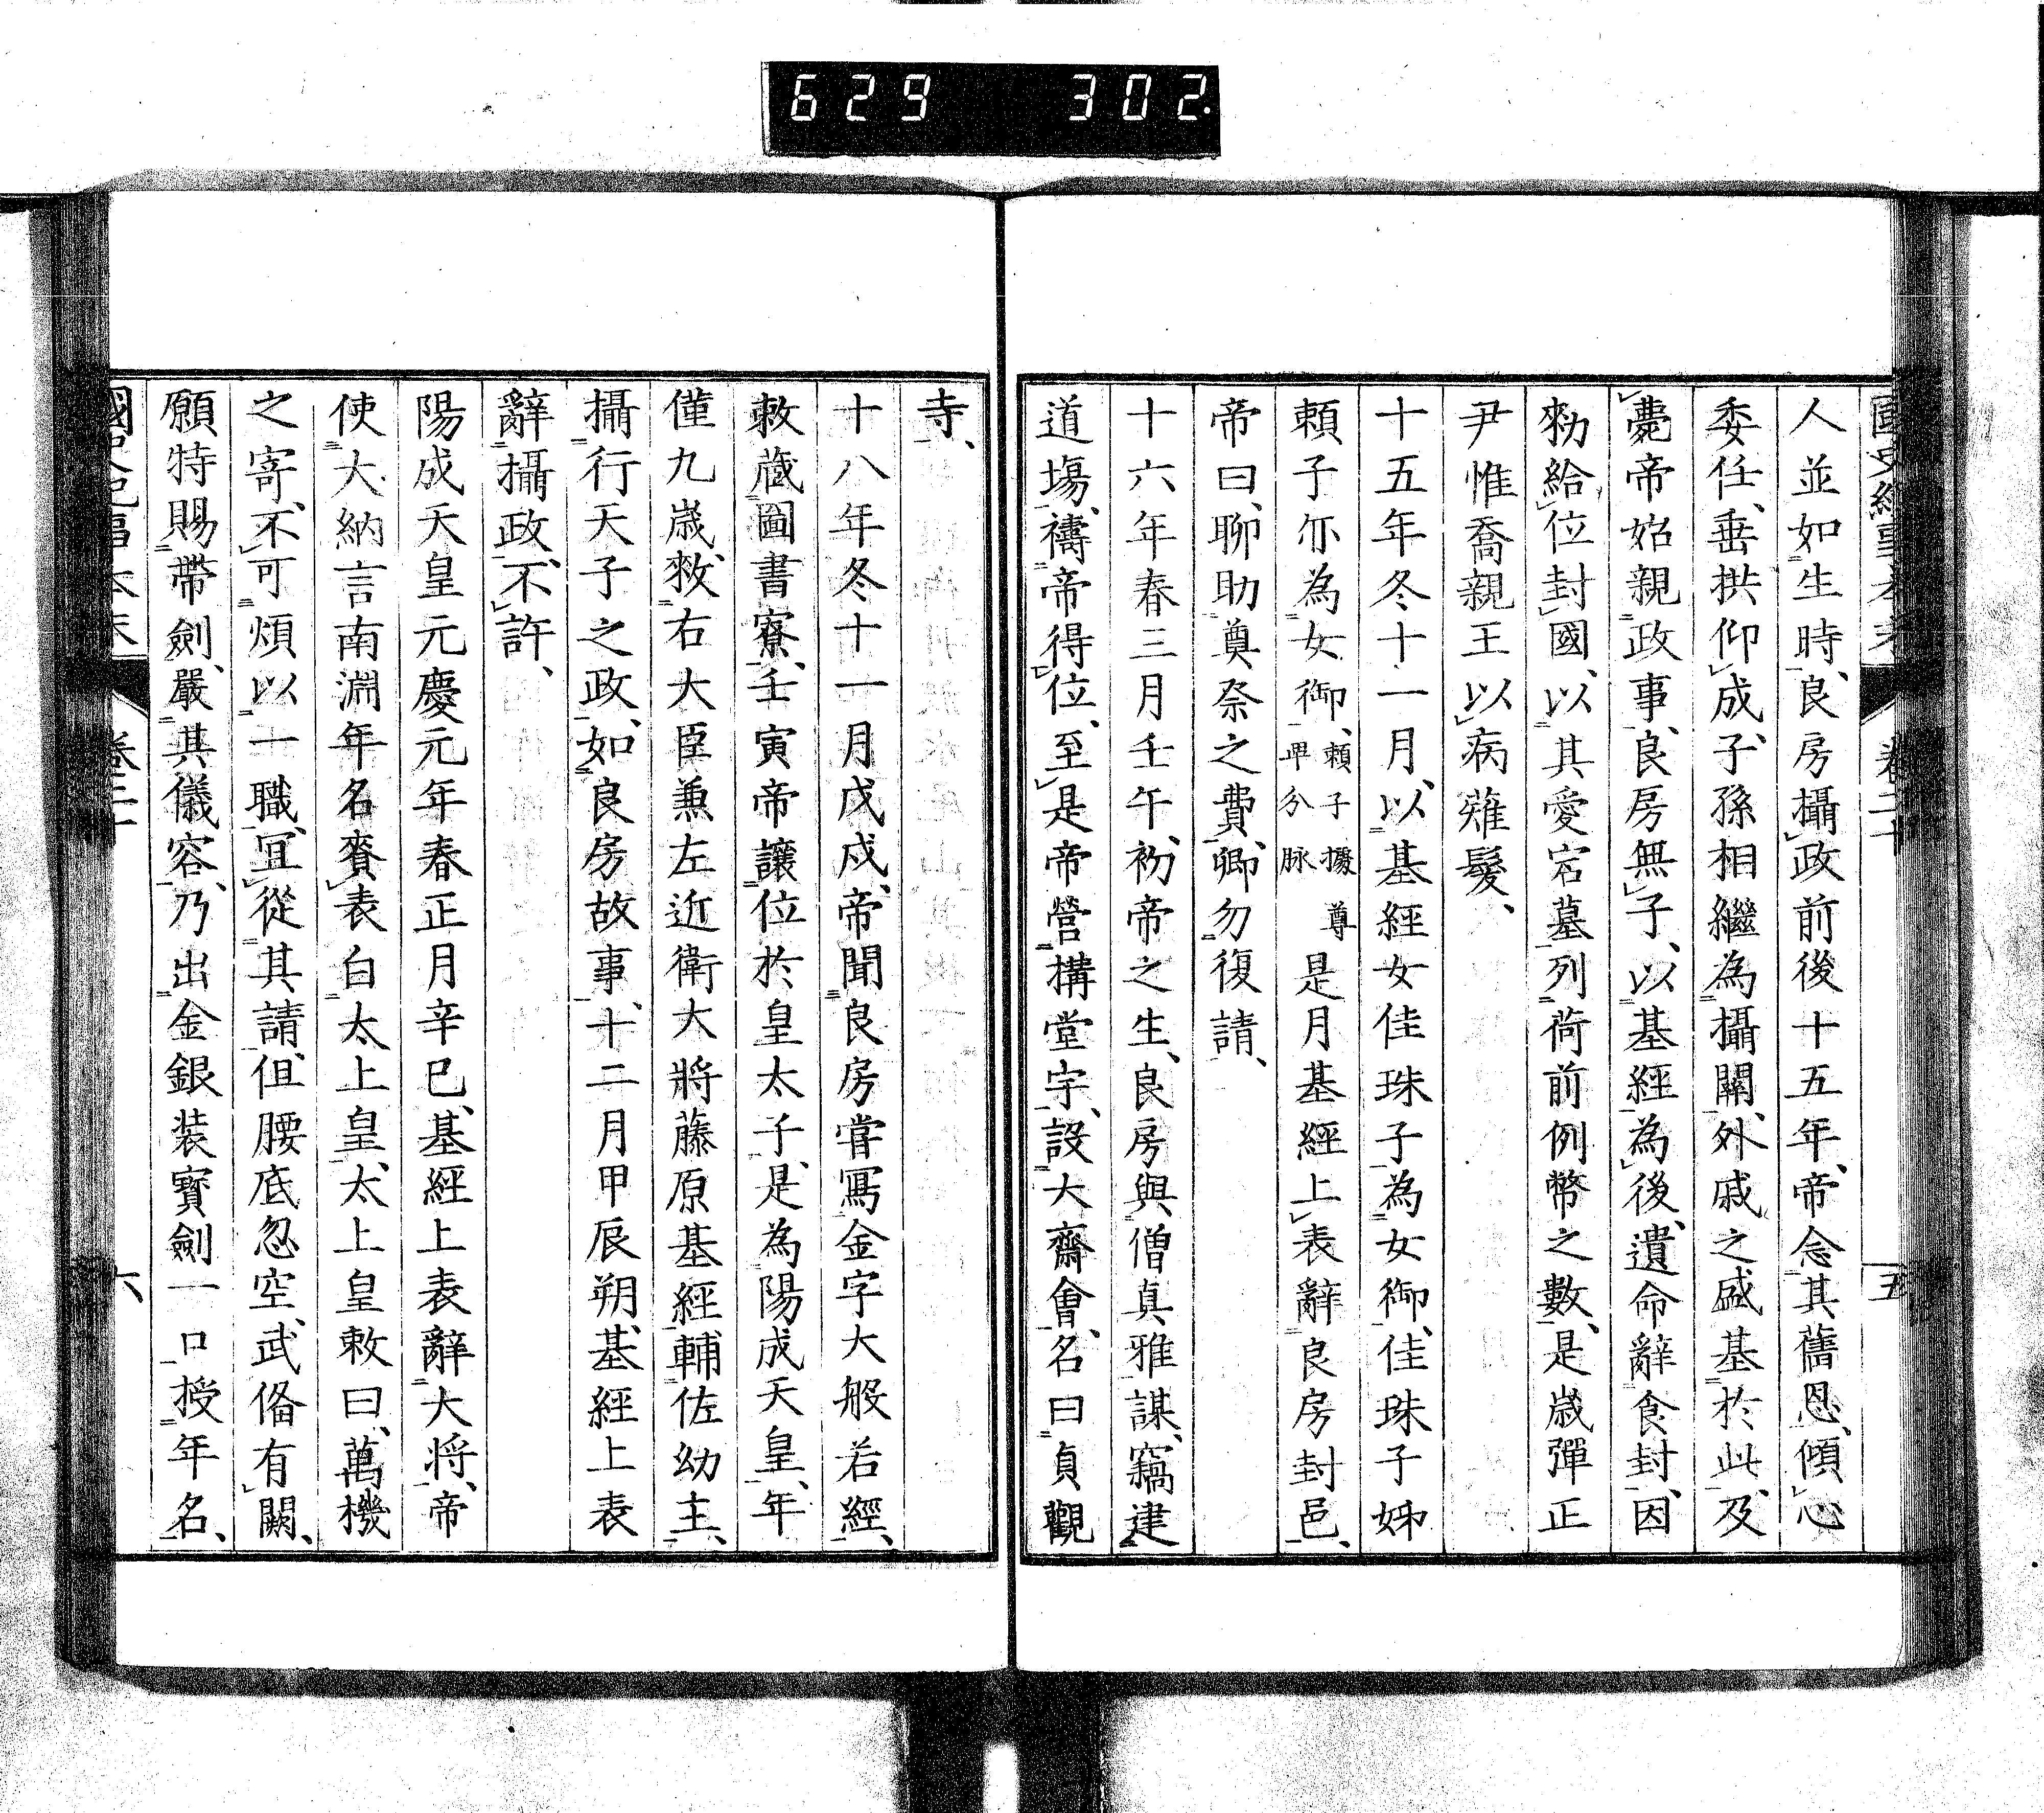 629 302.
國史紀事本末 卷二十 五
人並如生時、良房攝政前後十五年、帝念其舊恩、傾心
委任、垂拱仰成、子孫相繼為攝關、外戚之盛基於此、及
薨帝始親政事、良房無子、以基經為後、遺命辭食封、因
勅給位封國、以其愛宕墓列荷前例幣之數、是歲彈正
尹惟喬親王以病薙髮、
十五年冬十一月、以基經女佳珠子為女御、佳珠子姊
頼子亦為女御、頼子據尊卑分脉是月基經上表辭良房封邑、
帝曰、聊助奠祭之費、卿勿復請、
十六年春三月壬午、初帝之生、良房與僧真雅謀、竊建
道場、禱帝得位、至是帝營構堂宇、設大齋會、名曰貞觀
寺、
十八年冬十一月戊戌、帝聞良房嘗寫金字大般若經、
敕藏圖書寮、壬寅帝讓位於皇太子、是為陽成天皇、年
僅九歲、敕右大臣兼左近衛大將藤原基經輔佐幼主、
攝行天子之政、如良房故事、十二月甲辰朔、基經上表
辭攝政、不許、
陽成天皇元慶元年春正月辛巳、基經上表辭大将、帝
使大納言南淵年名賫表白太上皇、太上皇敕曰、萬機
之寄、不可煩以一職、宜從其請、但腰底忽空、武俻有闕、
願特賜帶劍、嚴其儀容、乃出金銀装寶劍一口授年名、
國史紀事本末 卷二十 六